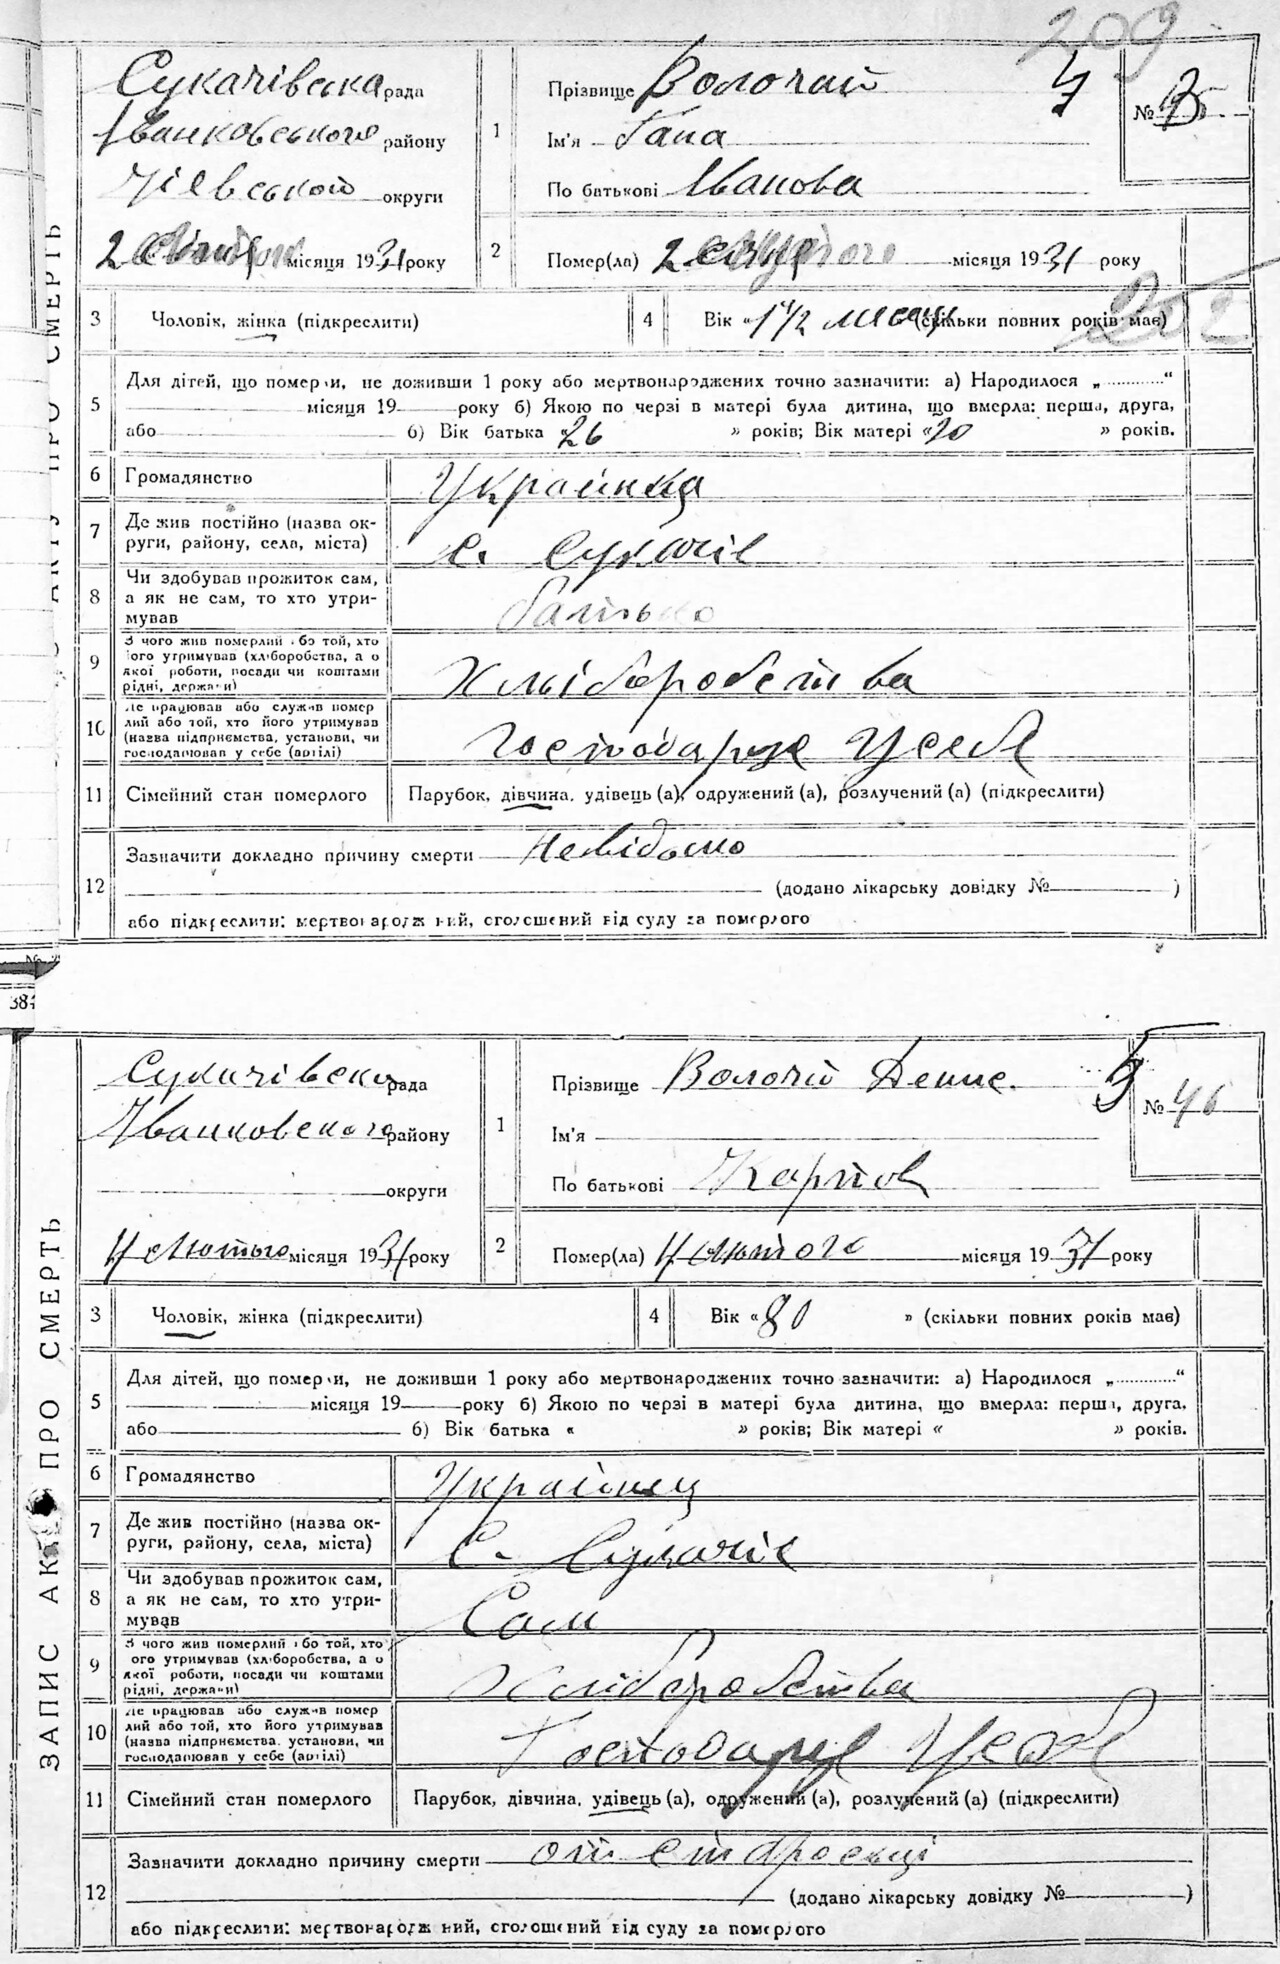 209
Сукачівська рада
Іванковського району
Київської округи
2 місяця 1931 року
1
Прізвище Волочай
4
№
Ім'я Гапа
По батькові Іванова
2
Помер(ла) 2 місяця 1931 року
3 Чоловік, жінка (підкреслити)
4 Вік « 1 1/2 месяця (скільки повних років має)
252
5
Для дітей, що померли, не доживши 1 року або мертвонароджених точно зазначити: а) Народилося „ “
місяця 19 року б) Якою по черзі в матері була дитина, що вмерла: перша, друга,
або б) Вік батька « 26 » років; Вік матері « 20 » років.
6 Громадянство Украинка
7 Де жив постійно (назва ок-
руги, району, села, міста) с. Сукачів
8 Чи здобував прожиток сам,
а як не сам, то хто утри-
мував батько
9 З чого жив померлий або той, хто
його утримував (хліборобства, а о
якої роботи, посади чи коштами
рідні, держави) Хліборобства
10 Де працював або служив помер
лий або той, хто його утримував
(назва підприємства, установи, чи
господарював у себе (артілі) Господарує у себе
11 Сімейний стан померлого Парубок, дівчина, удівець (а), одружений (а), розлучений (а) (підкреслити)
12
Зазначити докладно причину смерти Невідомо
(додано лікарську довідку № )
або підкреслити: мертвонароджений, оголошений від суду за померлого
384
ЗАПИС АКТУ ПРО СМЕРТЬ
Сукачівско рада
Іванковского району
округи
4 Лютого місяця 1931 року
1
Прізвище Волочій Денис.
5
№ 46
Ім'я
По батькові Карпов
2
Помер(ла) 4 лютого місяця 1931 року
3 Чоловік, жінка (підкреслити)
4 Вік « 80 » (скільки повних років має)
5
Для дітей, що померли, не доживши 1 року або мертвонароджених точно зазначити: а) Народилося „ “
місяця 19 року б) Якою по черзі в матері була дитина, що вмерла: перша, друга,
або б) Вік батька « » років; Вік матері « » років.
6 Громадянство Украинец
7 Де жив постійно (назва ок-
руги, району, села, міста) С. Сукачів
8 Чи здобував прожиток сам,
а як не сам, то хто утри-
мував Сам
9 З чого жив померлий або той, хто
ого утримував (хліборобства, а о
якої роботи, посади чи коштами
рідні, держави) Хліборобства
10 Де працював або служив помер
лий або той, хто його утримував
(назва підприємства, установи, чи
господарював у себе (артілі) Господарує у себе
11 Сімейний стан померлого Парубок, дівчина, удівець (а), одружений (а), розлучений (а) (підкреслити)
12
Зазначити докладно причину смерти от старосьці
(додано лікарську довідку № )
або підкреслити: мертвонароджений, оголошений від суду за померлого